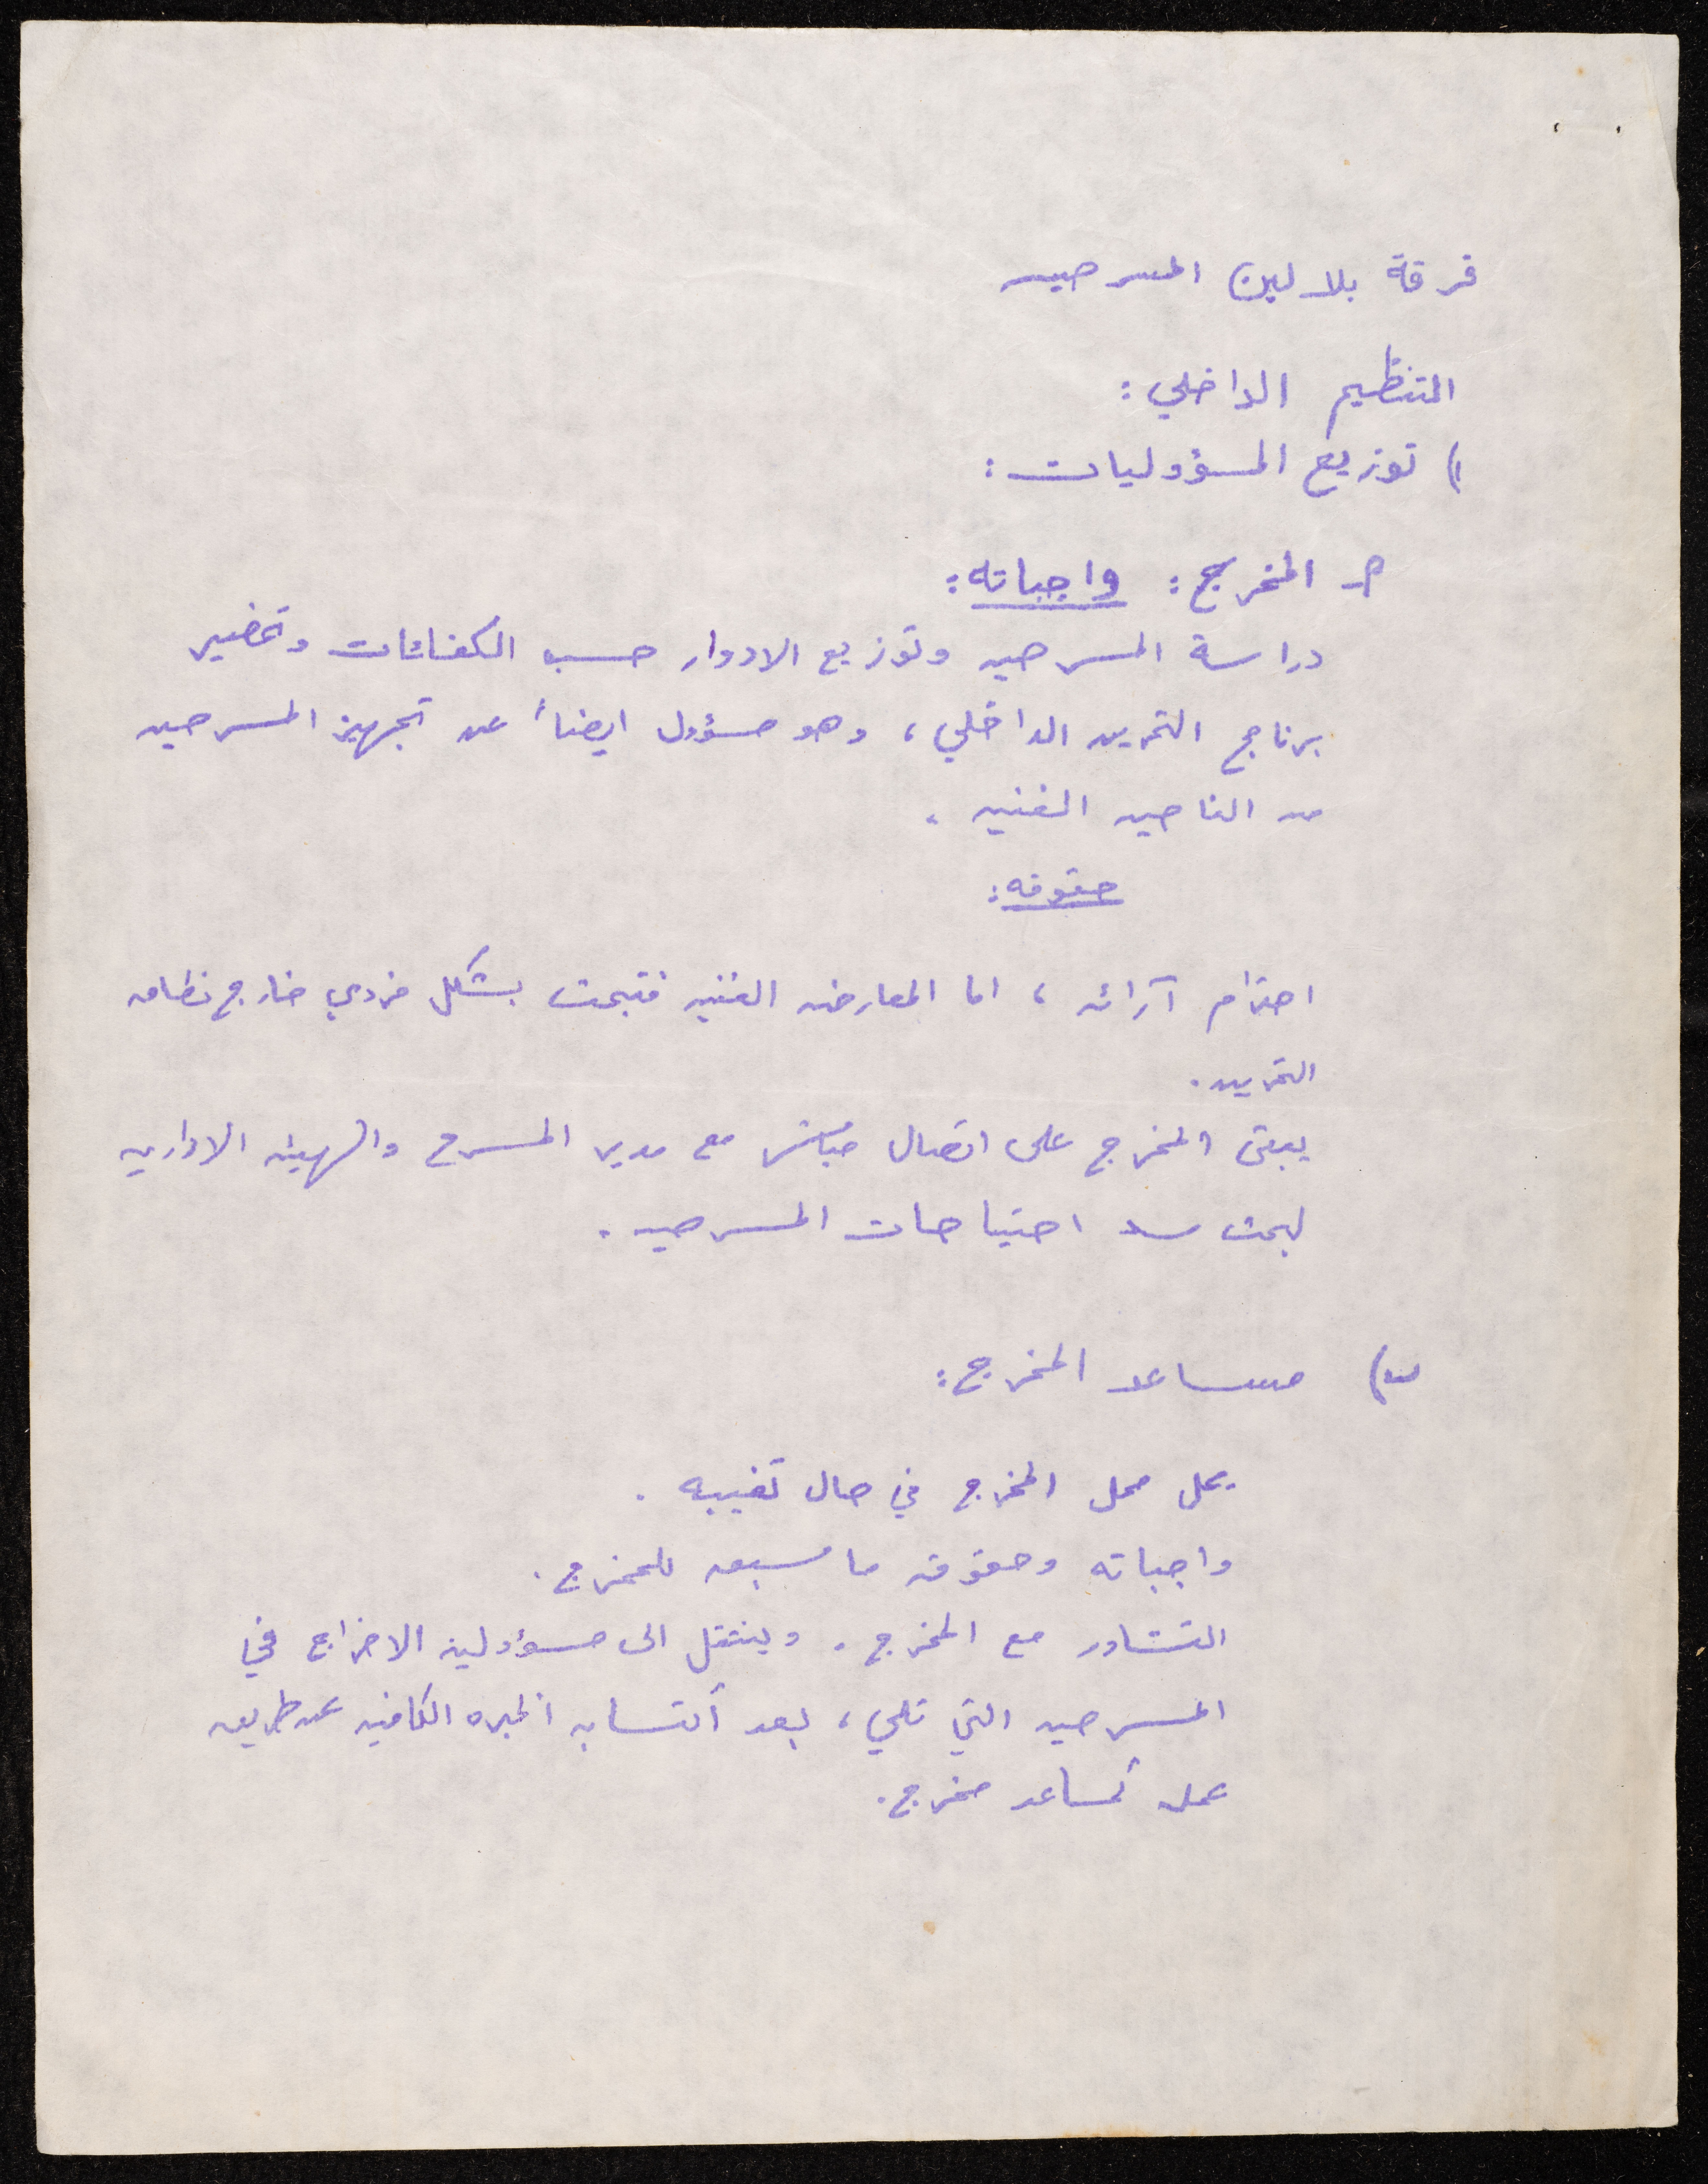 فرقة بلالين المسرحيه
التنظيم الداخلي :
١) توزيع المسؤوليات :
المخرج : واجباته :
دراسة المسرحيه وتوزيع الادوار حسب الكفائات وتحضير
برنامج التمرين الداخلي ، وهو مسؤول ايضاً عن تجهيز المسرحيه
من الناحيه الفنيه .
حقوقه :
احترام آرائه ، اما المعارضه الفنيه فتبحث بشكل فردي خارج نطاق
التمرين .
يبقى المخرج على اتصال مباشر مع مدير المسرح والهيئه الاداريه
لبحث سد احتياجات المسرحيه .
ب) مساعد المخرج :
يحل محل المخرج في حال تغيبه .
واجباته وحقوقه ما سبق للمخرج .
التشاور مع المخرج . وينتقل الى مسؤولية الاخراج في
المسرحيه التي تلي ، بعد أكتسابه الخبره الكافيه عن طريق
عمله كمساعد مخرج .